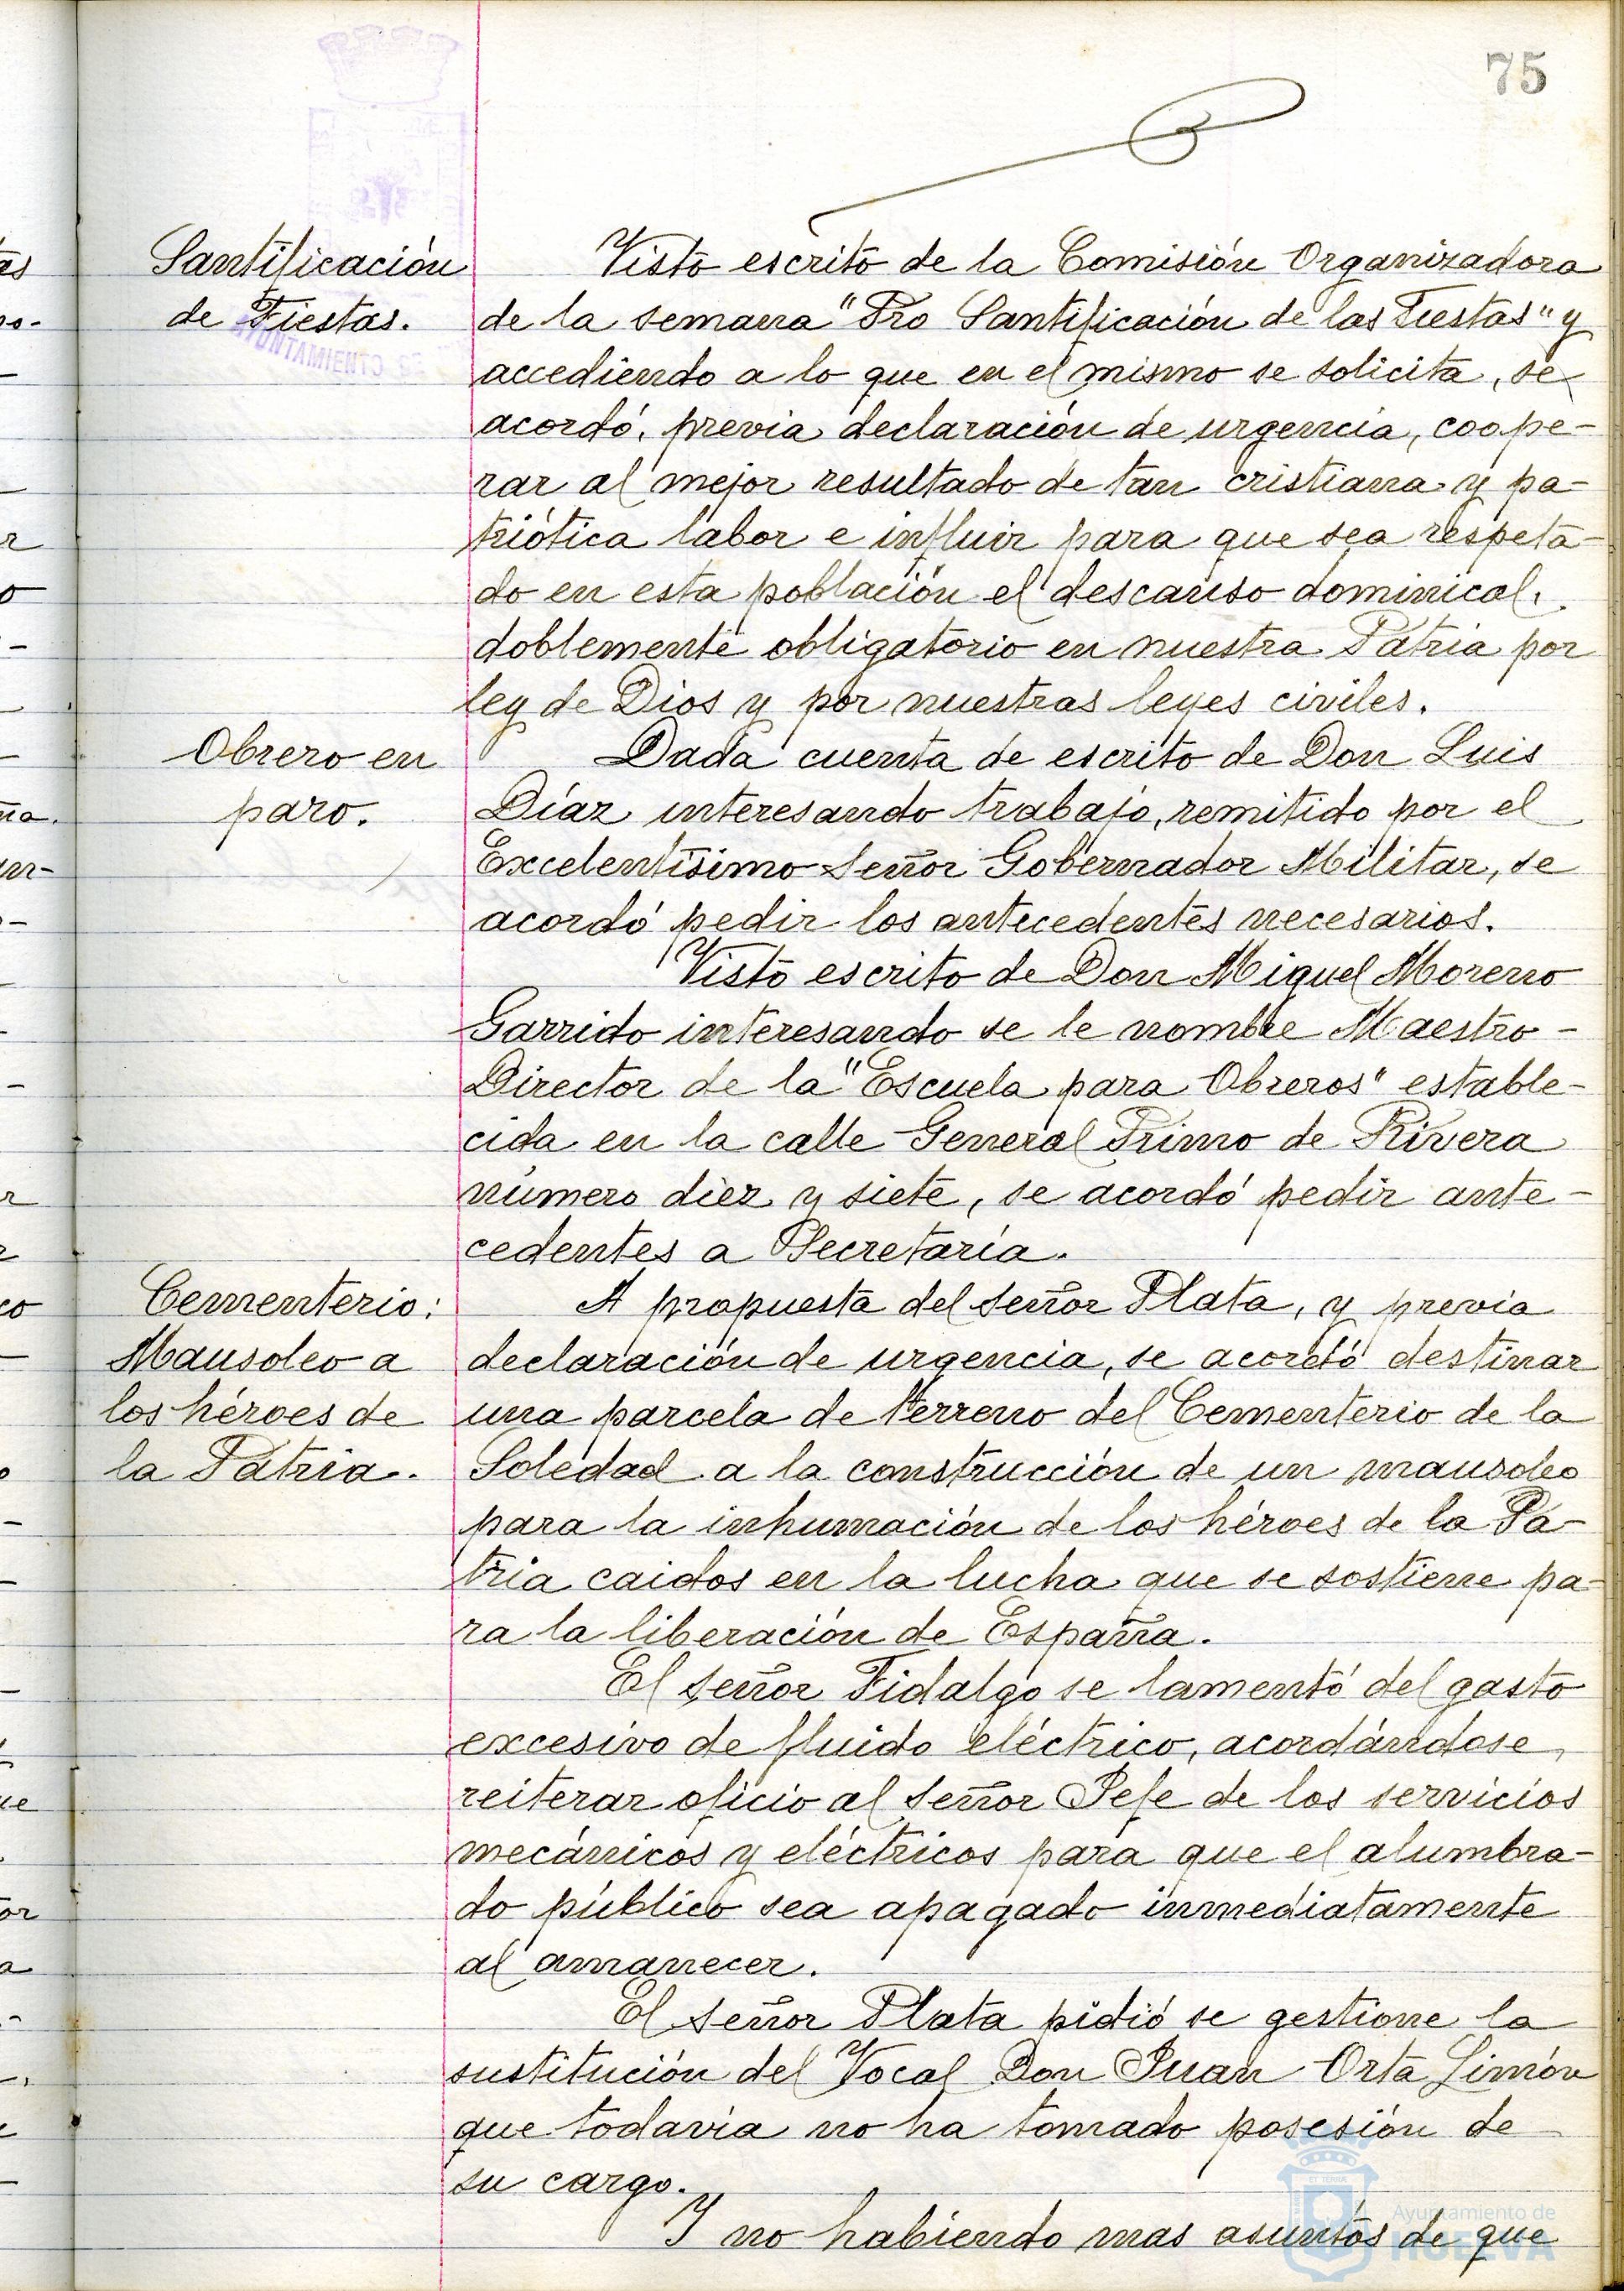 75
Santificación
de Fiestas.
Visto escrito de la Comisión Organizadora
de la semana "Pro Santificación de las Fiestas" y
accediendo a lo que en el mismo se solicita, se
acordó, previa declaración de urgencia, coope-
rar al mejor resultado de tan cristiana y pa-
triótica labor e influir para que sea respeta-
do en esta población el descanso dominical,
doblemente obligatorio en nuestra Patria por
ley de Dios y por nuestras leyes civiles.
Obrero en
paro.
Dada cuenta de escrito de Don Luis
Díaz interesando trabajo, remitido por el
Excelentísimo Señor Gobernador Militar, se
acordó pedir los antecedentes necesarios.
Visto escrito de Don Miguel Moreno
Garrido interesando se le nombre Maestro-
Director de la "Escuela para Obreros" estable-
cida en la calle General Primo de Rivera
número diez y siete, se acordó pedir ante-
cedentes a Secretaría.
Cementerio:
Mausoleo a
los héroes de
la Patria.
A propuesta del Señor Plata, y previa
declaración de urgencia, se acordó destinar
una parcela de terreno del Cementerio de la
Soledad a la construcción de un mausoleo
para la inhumación de los héroes de la Pa-
tria caidos en la lucha que se sostiene pa-
ra la liberación de España.
El Señor Fidalgo se lamentó del gasto
excesivo de fluido eléctrico, acordándose
reiterar oficio al Señor Jefe de los servicios
mecánicos y eléctricos para que el alumbra-
do público sea apagado inmediatamente
al amanecer.
El Señor Plata pidió se gestione la
sustitución del Vocal Don Juan Orta Limón
que todavía no ha tomado posesión de
su cargo.
Y no habiendo mas asuntos de que
Ayuntamiento de
HUELVA